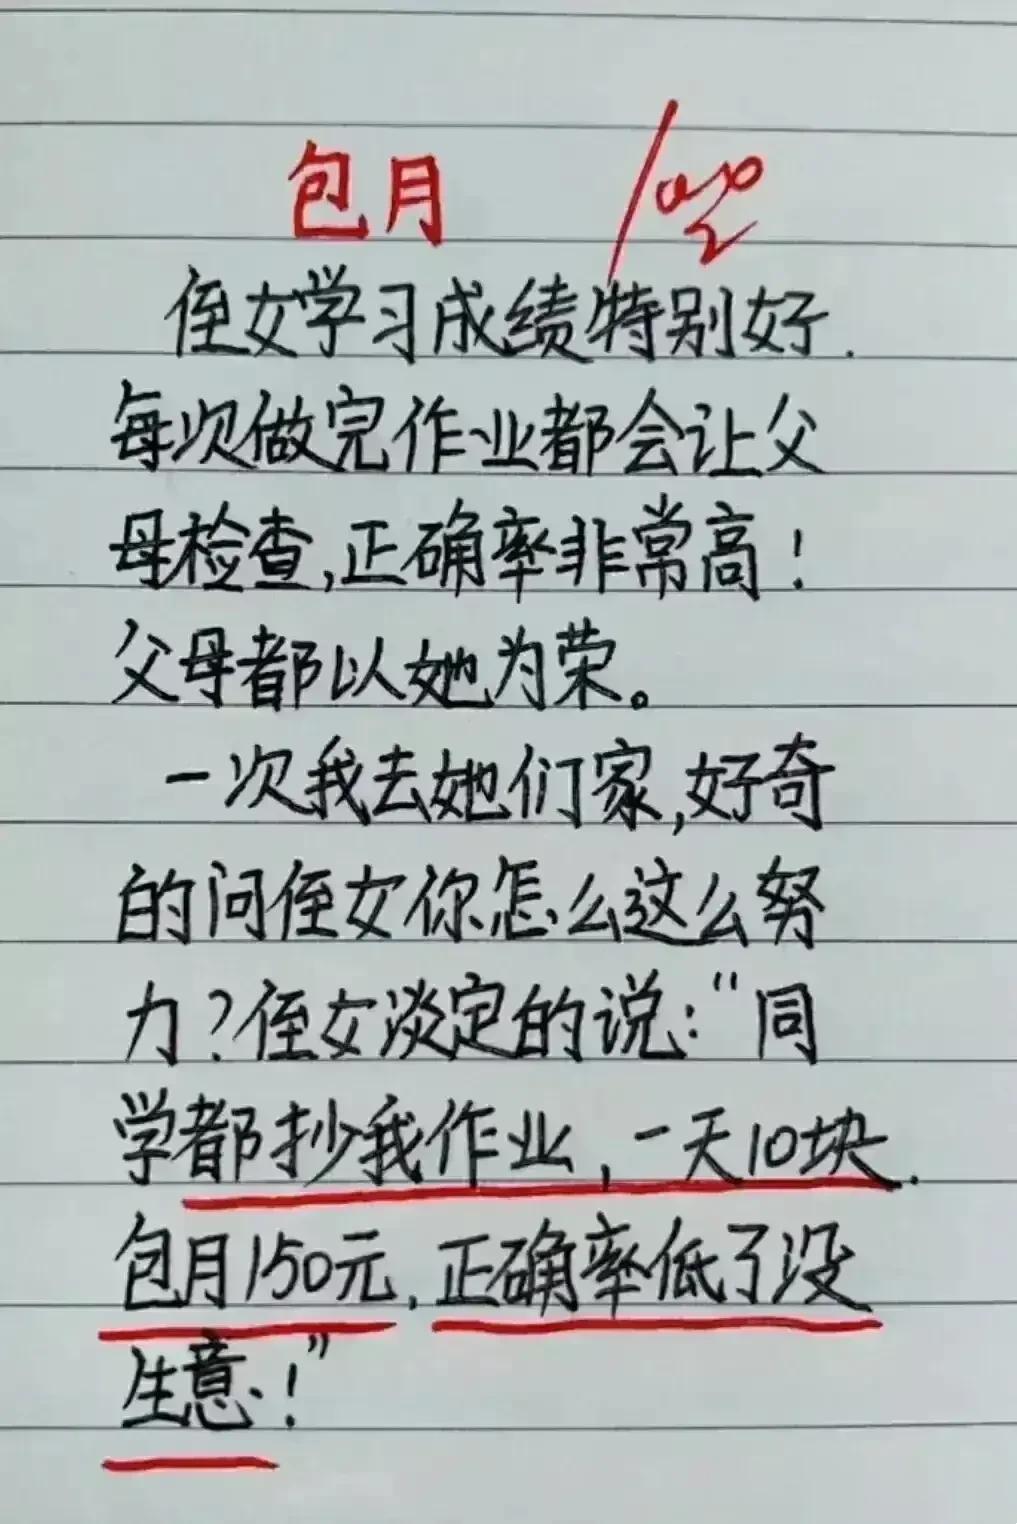 包月 100
侄女学习成绩特别好.
每次做完作业都会让父
母检查,正确率非常高!
父母都以她为荣。
一次我去她们家,好奇
的问侄女你怎么这么努
力?侄女淡定的说:“同
学都抄我作业,一天10块.
包月150元,正确率低了没
生意!”